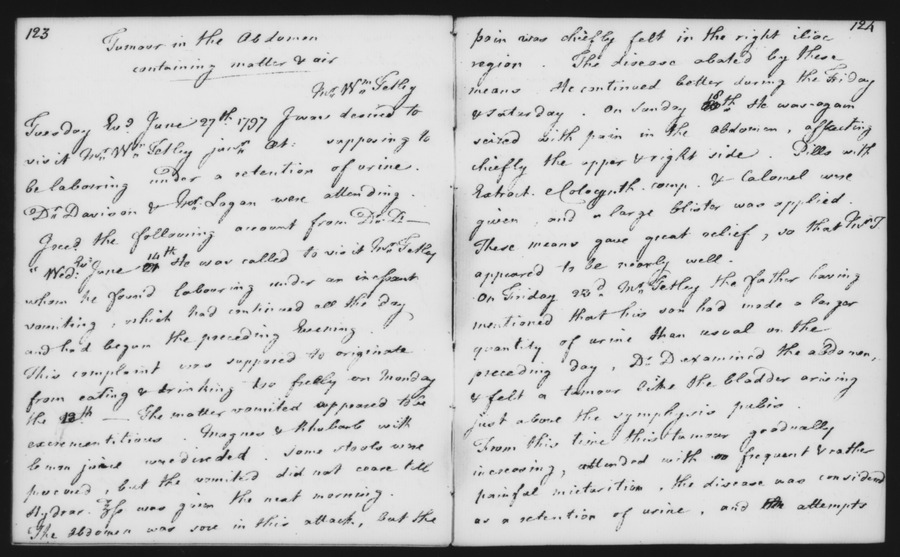 123
Tumour in the Abdomen
containing matter & air
Mr Wm Tetley
Tuesday June 27th 1797 I was desired to
visit Mr Wm Tetley junr at supposing to
be labouring under a retention of urine.
Dr Davison & Mr Logan were attending.
I recd the following account from Dr D—
"Wedy June 14th He was called to visit Mr Tetley
whom he found labouring under an incessant
vomiting, which had continued all the day,
and had begun the preceding Evening.
This complaint was supposed to originate
from eating & drinking too freely on Monday
the 12th — The matter vomited appeared to be
excrementitious. Magnes & Rhubarb with
lemon juice were directed. Some stools were
procured, but the vomited did not cease till
Hydrar. was given the next morning.
The abdomen was sore in this attack, but the
124
pain was chiefly felt in the right iliac
region. The disease abated by these
means. He continued better during the Friday
& Saturday. On Sunday 18th He was again
seized with pain in the abdomen, affecting
chiefly the upper & right side. Pills with
Extract. Colocynth. comp. & Calomel were
given and a large blister was applied.
These means gave great relief, so that Mr T.
appeared to be nearly well.
On Friday 23d Mr Tetley the father having
mentioned that his son had made a larger
quantity of urine than usual on the
preceding day, Dr D examined the abdomen,
& felt a tumour like the bladder arising
just above the symphysis pubis.
From this time this tumour gradually
increasing, attended with frequent & rather
painful micturition, the disease was considered
as a retention of urine, and attempts